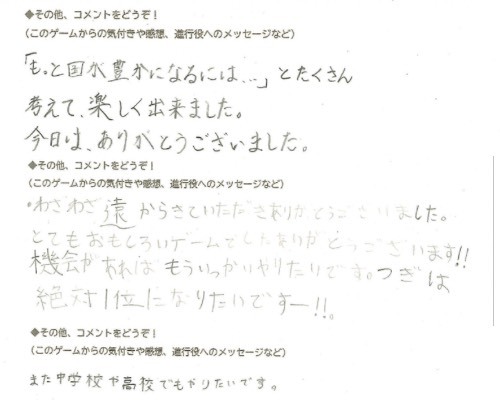 ◆その他、コメントをどうぞ!
(このゲームからの気付きや感想、進行役へのメッセージなど)
「もっと国が豊かになるには…」とたくさん
考えて、楽しく出来ました。
今日は、ありがとうございました。
◆その他、コメントをどうぞ!
(このゲームからの気付きや感想、進行役へのメッセージなど)
・わざわざ遠からきていただきありがとうございました。
とてもおもしろいゲームでしたありがとうございます!!
機会があればもういっかいやりたいです。つぎは
絶対1位になりたいですー!!。
◆その他、コメントをどうぞ!
(このゲームからの気付きや感想、進行役へのメッセージなど)
また中学校や高校でもやりたいです。